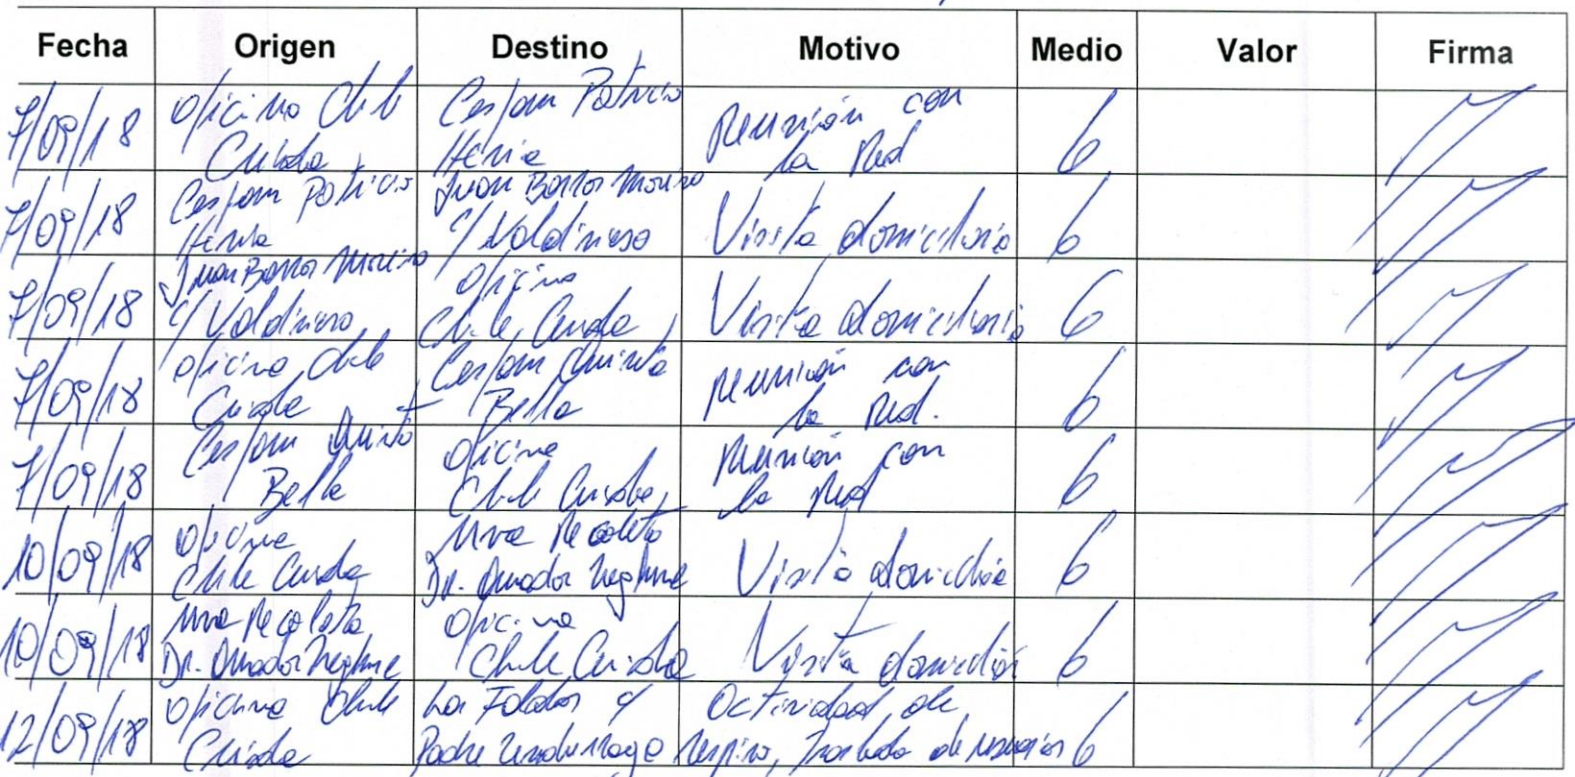 Fecha Origen Destino Motivo Medio Valor Firma
7/09/18 Oficina Chile Cuida Cesfam Patricio Hevia Reunión con la Red 6
7/09/18 Cesfam Patricio Hevia Juan Barros Moreno c/ Valdivieso Visita domiciliaria 6
7/09/18 Juan Barros Moreno c/ Valdivieso Oficina Chile Cuida Visita domiciliaria 6
7/09/18 Oficina Chile Cuida Cesfam Quinta Bella Reunión con la Red. 6
7/09/18 Cesfam Quinta Bella Oficina Chile Cuida Reunión con la Red 6
10/09/18 Oficina Chile Cuida Recoleta Dr. Amador Neghme Visita domiciliaria 6
10/09/18 Recoleta Dr. Amador Neghme Oficina Chile Cuida Visita domiciliaria 6
12/09/18 Oficina Chile Cuida c/ Padre Undurraga Actividad de respiro, traslado de usuarios 6